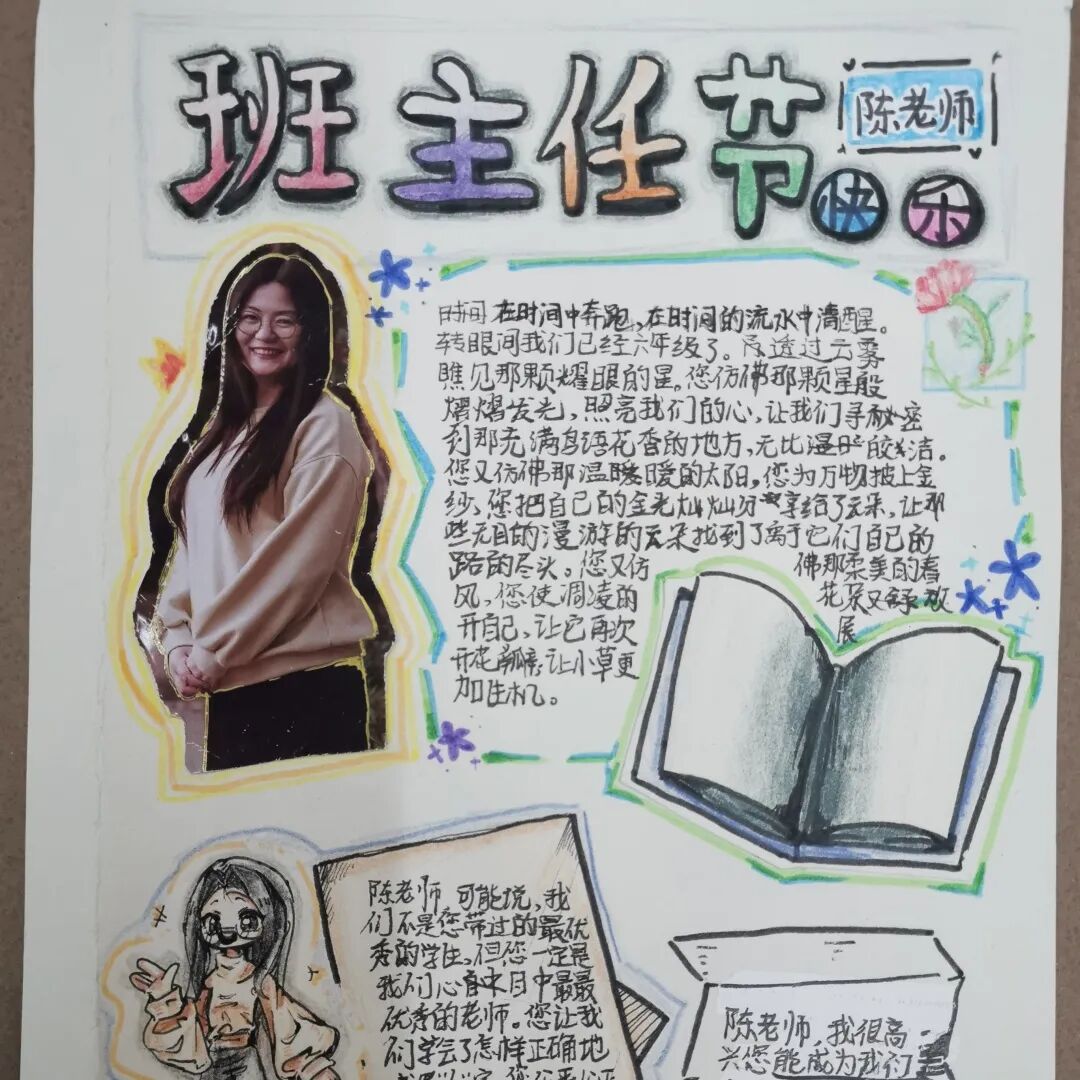 班主任节
陈老师
快乐
时间在时间中奔跑，在时间的流水中清醒。
转眼间我们已经六年级了。透过云雾
瞧见那颗耀眼的星。您仿佛那颗星般
熠熠发光，照亮我们的心，让我们寻秘密
刹那充满鸟语花香的地方，无比温皎洁。
您又仿佛那温暖暖的太阳，您为万物披上金
纱，您把自己的金光灿灿分享给了云朵，让那
些无目的漫游的云朵找到了离于它们自己的
路的尽头。您又仿佛那柔美的春
风，您使凋凌的花朵又舒放
开自己，让它再次展
开花瓣，让小草更
加生机。
陈老师，可能说，我
们不是您带过的最优
秀的学生，但您一定是
我们心中目中最最
优秀的老师。您让我
们学会了怎样正确地
陈老师，我很高
兴您能成为我们